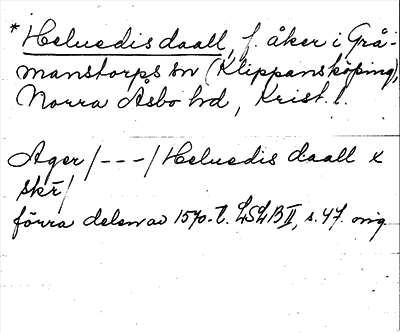 * Heluedis daall, f. åker i Grå-
manstorps sn (Klippansköping),
Norra Åsbo hd, Krist. l.
Ager /---/ Heluedis daall x
skr/
förra delen av 1570-t. LSLB II, s. 47. orig.